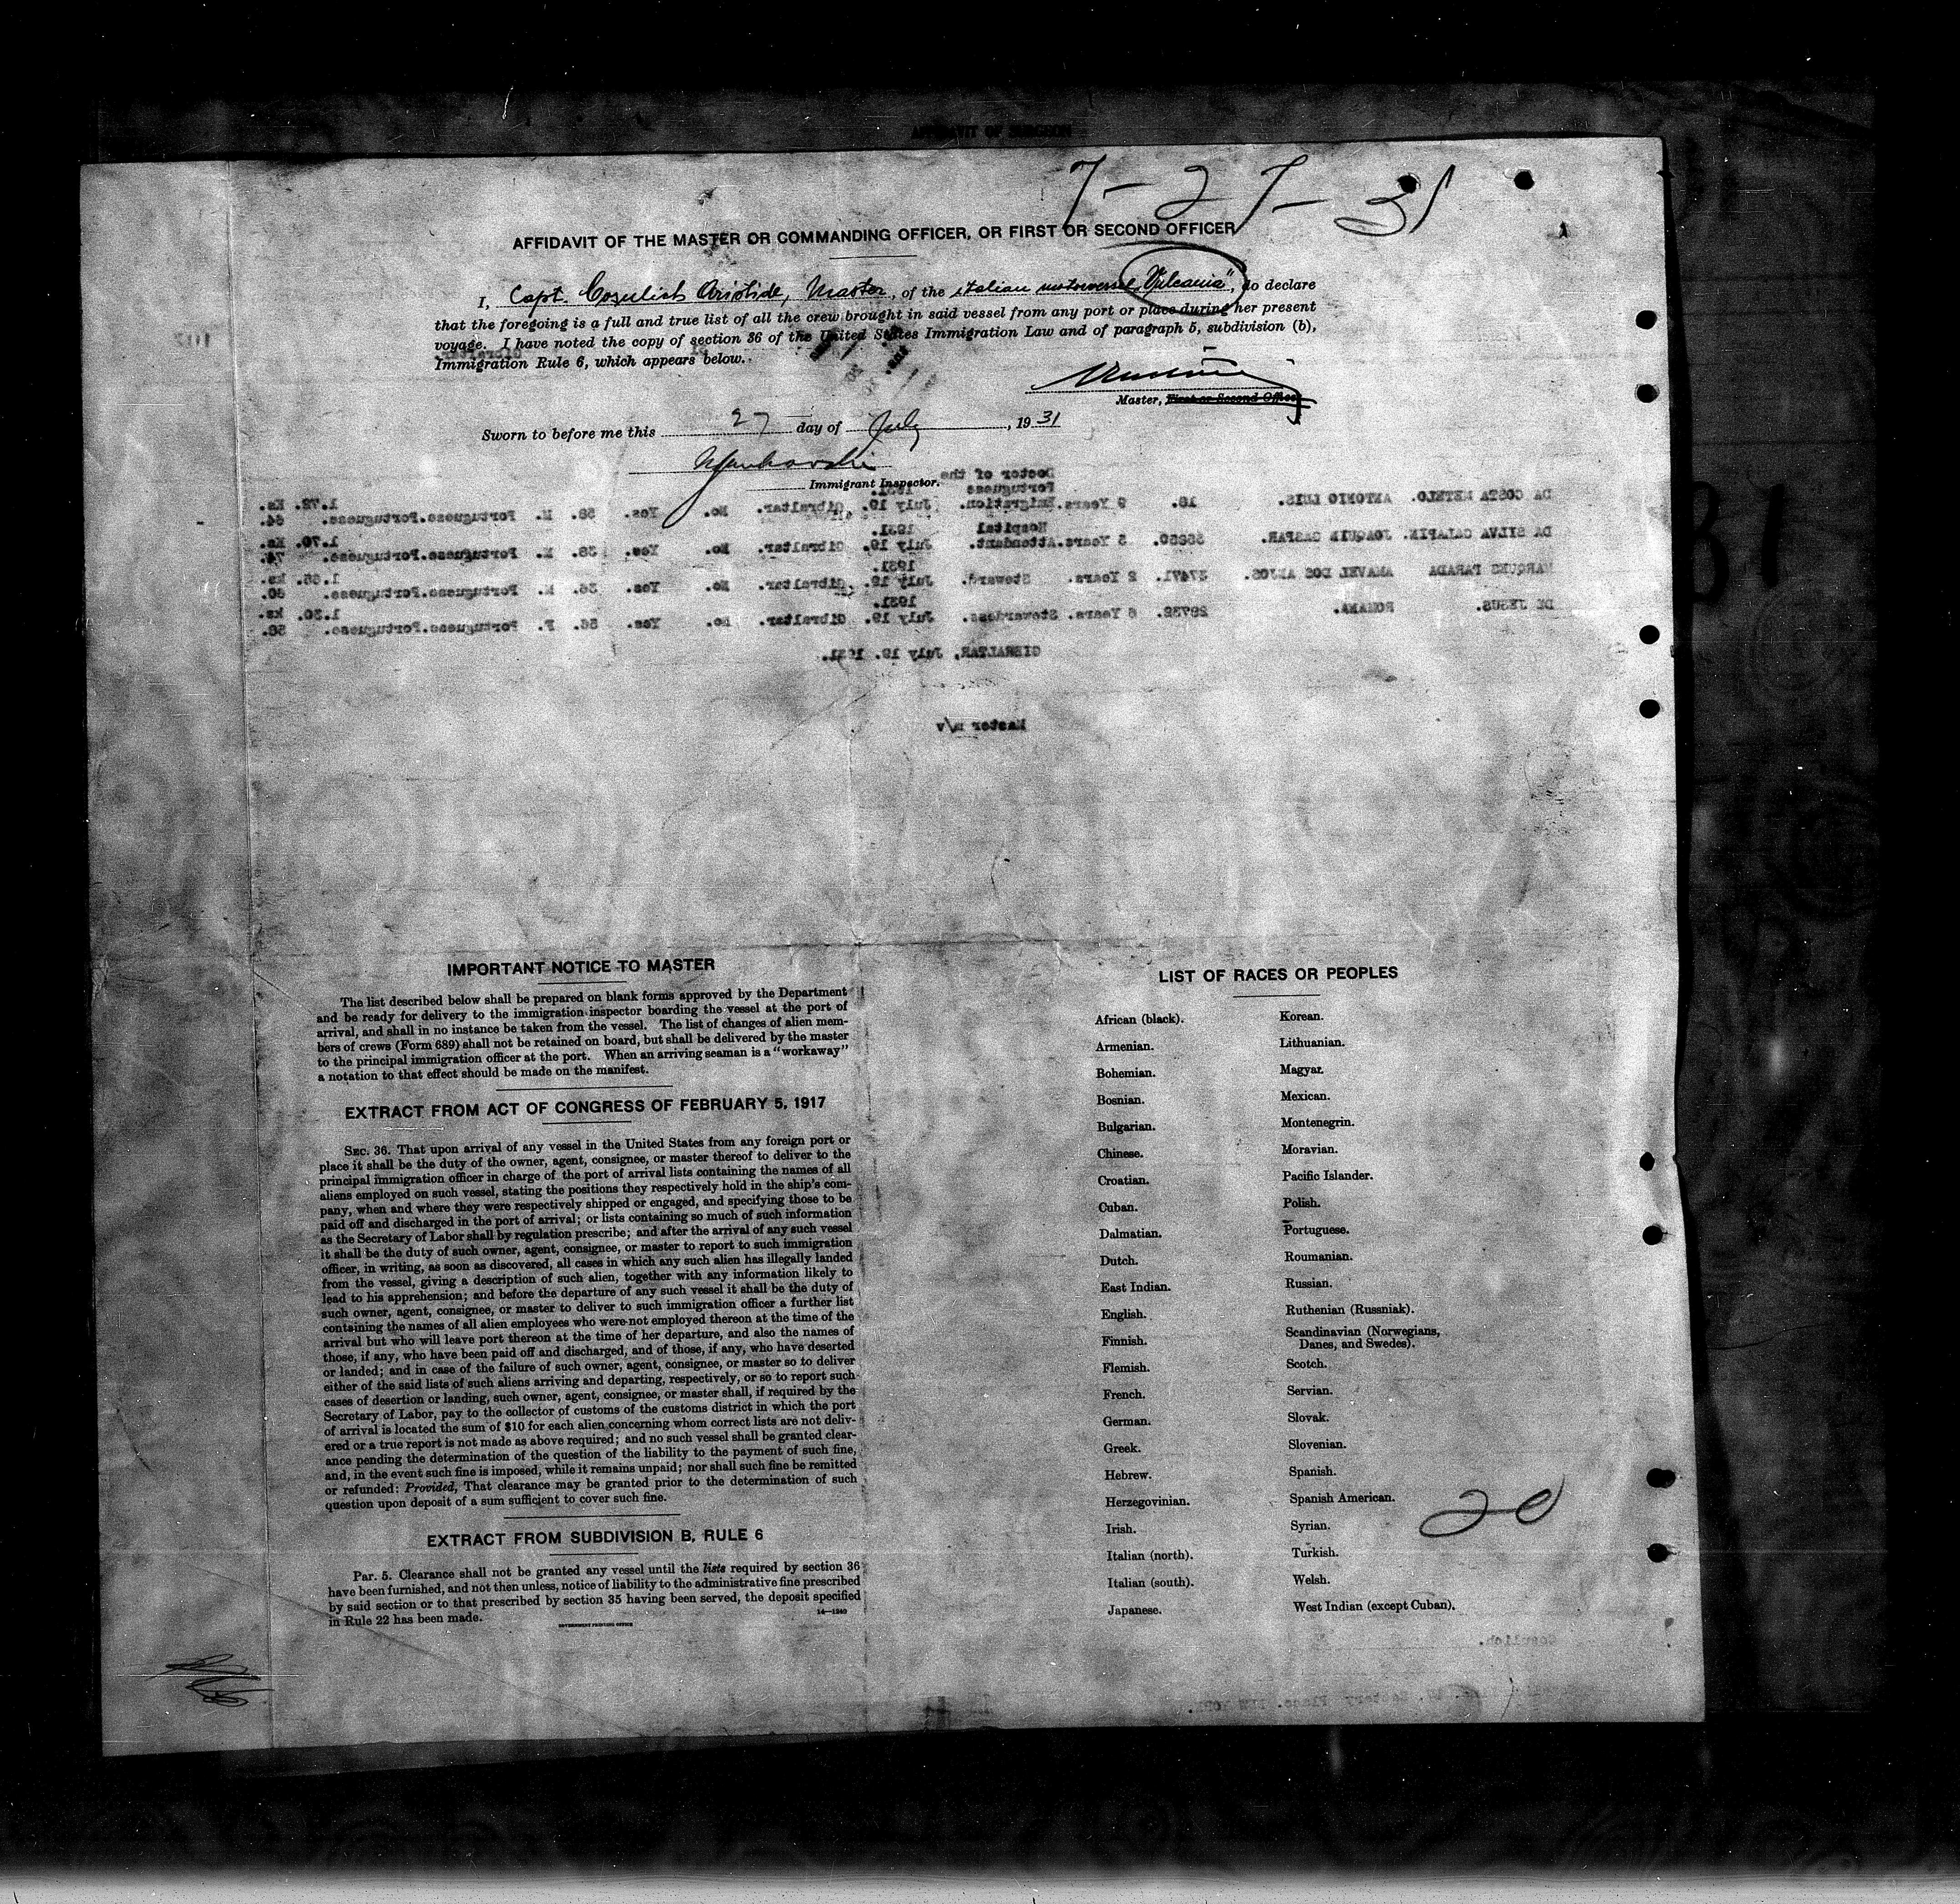 AFFIDAVIT OF SURGEON
7-27-31
AFFIDAVIT OF THE MASTER OR COMMANDING OFFICER, OR FIRST OR SECOND OFFICER
I, Capt. Cosulich Aristide, Master, of the italian motorvessel "Vulcania", do declare
that the foregoing is a full and true list of all the crew brought in said vessel from any port or place during her present
voyage. I have noted the copy of section 36 of the United States Immigration Law and of paragraph 5, subdivision (b),
Immigration Rule 6, which appears below.
Master, First or Second Officer
Sworn to before me this 27 day of July, 1931
Immigrant Inspector.
Doctor of the
Portuguese 1931.
DA COSTA METELO. ANTONIO LUIS. 18. 9 Years. Emigration. July 19. Gibraltar. No. Yes. 38. M. Portuguese. Portuguese. 1.72. Ks. 64.
Hospital 1931.
DA SILVA CALAPIN. JOAQUIN GASPAR. 5 Years. Attendant. July 19. Gibraltar. No. Yes. 38. M. Portuguese. Portuguese. 1.70. Ks. 74.
1931.
MARQUES PARADA 37471. 2 Years. Steward. July 19. Gibraltar. No. Yes. 36. M. Portuguese. Portuguese. 60.
1931.
DE JESUS. ROMANA. 29739. 6 Years. Stewardess. July 19. Gibraltar. No. Yes. 56. F. Portuguese. Portuguese. 1.50. ks 58.
GIBRALTAR, July 19. 1931.
Master m/v
IMPORTANT NOTICE TO MASTER
The list described below shall be prepared on blank forms approved by the Department
and be ready for delivery to the immigration inspector boarding the vessel at the port of
arrival, and shall in no instance be taken from the vessel. The list of changes of alien mem-
bers of crews (Form 689) shall not be retained on board, but shall be delivered by the master
to the principal immigration officer at the port. When an arriving seaman is a "workaway"
a notation to that effect should be made on the manifest.
EXTRACT FROM ACT OF CONGRESS OF FEBRUARY 5, 1917
SEC. 36. That upon arrival of any vessel in the United States from any foreign port or
place it shall be the duty of the owner, agent, consignee, or master thereof to deliver to the
principal immigration officer in charge of the port of arrival lists containing the names of all
aliens employed on such vessel, stating the positions they respectively hold in the ship's com-
pany, when and where they were respectively shipped or engaged, and specifying those to be
paid off and discharged in the port of arrival; or lists containing so much of such information
as the Secretary of Labor shall by regulation prescribe; and after the arrival of any such vessel
it shall be the duty of such owner, agent, consignee, or master to report to such immigration
officer, in writing, as soon as discovered, all cases in which any such alien has illegally landed
from the vessel, giving a description of such alien, together with any information likely to
lead to his apprehension; and before the departure of any such vessel it shall be the duty of
such owner, agent, consignee, or master to deliver to such immigration officer a further list
containing the names of all alien employees who were not employed thereon at the time of the
arrival but who will leave port thereon at the time of her departure, and also the names of
those, if any, who have been paid off and discharged, and of those, if any, who have deserted
or landed; and in case of the failure of such owner, agent, consignee, or master so to deliver
either of the said lists of such aliens arriving and departing, respectively, or so to report such
cases of desertion or landing, such owner, agent, consignee, or master shall, if required by the
Secretary of Labor, pay to the collector of customs of the customs district in which the port
of arrival is located the sum of $10 for each alien concerning whom correct lists are not deliv-
ered or a true report is not made as above required; and no such vessel shall be granted clear-
ance pending the determination of the question of the liability to the payment of such fine,
and, in the event such fine is imposed, while it remains unpaid; nor shall such fine be remitted
or refunded: Provided, That clearance may be granted prior to the determination of such
question upon deposit of a sum sufficient to cover such fine.
EXTRACT FROM SUBDIVISION B, RULE 6
Par. 5. Clearance shall not be granted any vessel until the lists required by section 36
have been furnished, and not then unless, notice of liability to the administrative fine prescribed
by said section or to that prescribed by section 35 having been served, the deposit specified
in Rule 22 has been made.
14—1240
GOVERNMENT PRINTING OFFICE
LIST OF RACES OR PEOPLES
African (black).
Armenian.
Bohemian.
Bosnian.
Bulgarian.
Chinese.
Croatian.
Cuban.
Dalmatian.
Dutch.
East Indian.
English.
Finnish.
Flemish.
French.
German.
Greek.
Hebrew.
Herzegovinian.
Irish.
Italian (north).
Italian (south).
Japanese.
Korean.
Lithuanian.
Magyar.
Mexican.
Montenegrin.
Moravian.
Pacific Islander.
Polish.
Portuguese.
Roumanian.
Russian.
Ruthenian (Russniak).
Scandinavian (Norwegians,
Danes, and Swedes).
Scotch.
Servian.
Slovak.
Slovenian.
Spanish.
Spanish American.
Syrian.
Turkish.
Welsh.
West Indian (except Cuban).
20
Cosulich.